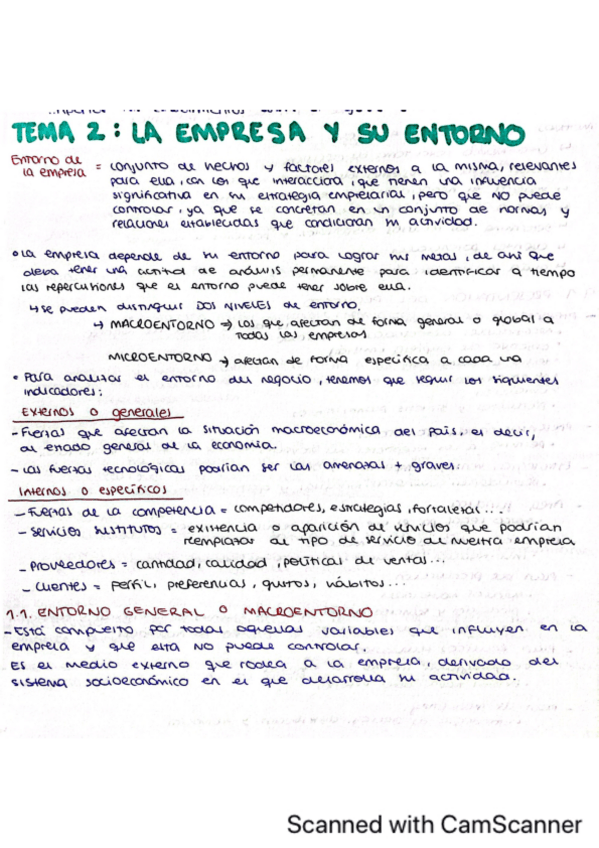 TEMA 2: LA EMPRESA Y SU ENTORNO
Entorno de la empresa = conjunto de hechos y factores externos a la misma, relevantes
para ella, con los que interacciona, que tienen una influencia
significativa en su estrategia empresarial, pero que no puede
controlar, ya que se concretan en un conjunto de normas y
relaciones establecidas que condicionan su actividad.
• La empresa depende de su entorno para lograr sus metas, de ahí que
deba tener una actitud de análisis permanente para identificar a tiempo
las repercusiones que el entorno puede tener sobre ella.
↳ se pueden distinguir DOS NIVELES de entorno.
→ MACROENTORNO → los que afectan de forma general o global a
todas las empresas
MICROENTORNO → afectan de forma específica a cada una
• Para analizar el entorno del negocio, tenemos que seguir los siguientes
indicadores:
Externos o generales
- Fuerzas que afectan la situación macroeconómica del país, es decir,
al estado general de la economía.
- Las fuerzas tecnológicas podrían ser las amenazas + graves.
Internos o específicos
- Fuerzas de la competencia = competidores, estrategias, fortalezas...
- Servicios sustitutos = existencia o aparición de servicios que podrían
reemplazar al tipo de servicio de nuestra empresa
- Proveedores = cantidad, calidad, políticas de ventas...
- Clientes = perfil, preferencias, gustos, hábitos...
1.1. ENTORNO GENERAL O MACROENTORNO
- Está compuesto por todas aquellas variables que influyen en la
empresa y que esta no puede controlar.
Es el medio externo que rodea a la empresa, derivado del
sistema socioeconómico en el que desarrolla su actividad.
Scanned with CamScanner